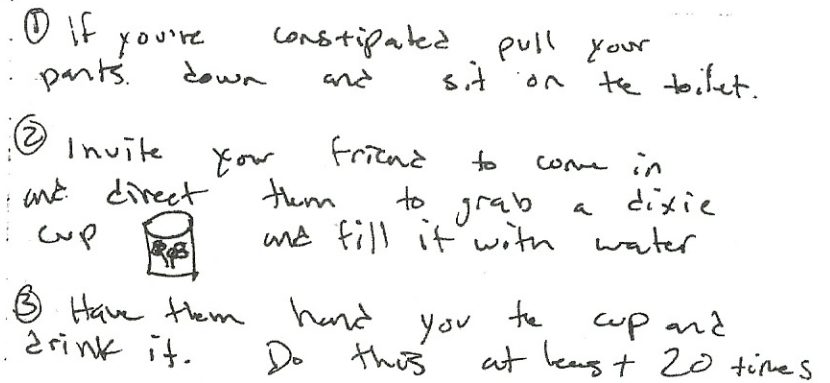 ① If you're constipated pull your
pants. down and sit on the toilet.
② Invite your friend to come in
and direct them to grab a dixie
cup and fill it with water
③ Have them hand you the cup and
drink it. Do this at least 20 times